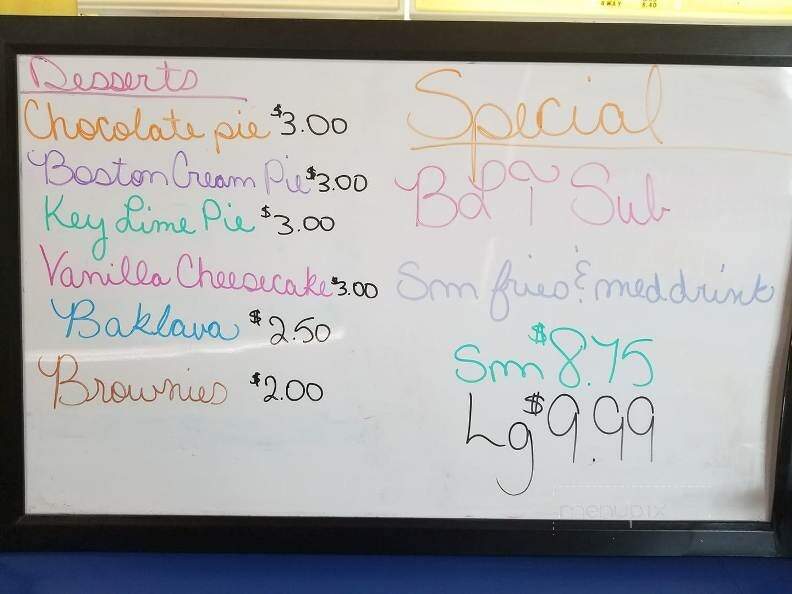 Desserts
Chocolate pie $3.00
Boston Cream Pie $3.00
Key Lime Pie $3.00
Vanilla Cheesecake $3.00
Baklava $2.50
Brownies $2.00
Special
BLT Sub
Sm fries & med drink
Sm $8.75
Lg $9.99
menupix